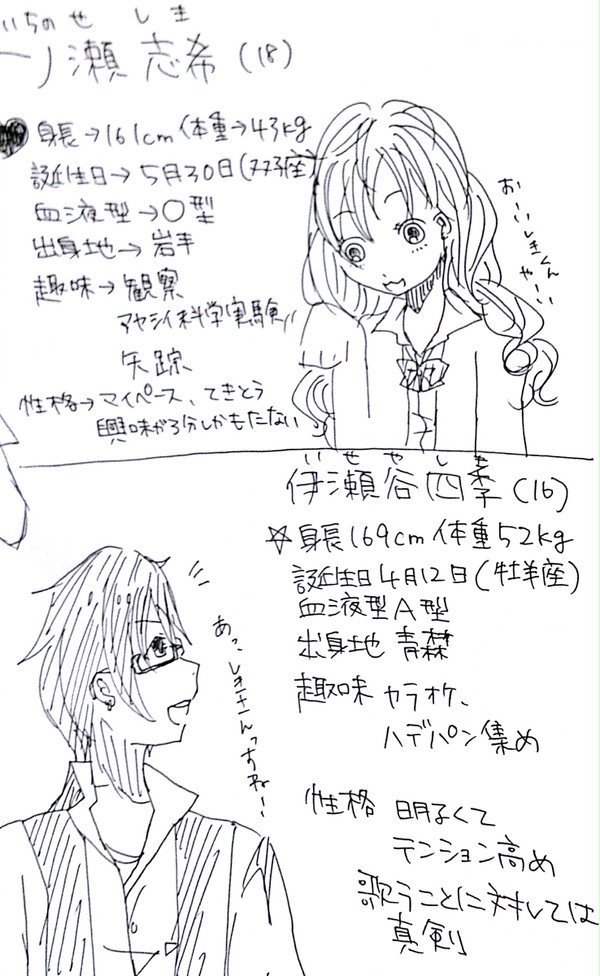 いちのせ しき
一ノ瀬 志希(18)
身長→161cm 体重→43kg
誕生日→5月30日(双子座)
血液型→O型
出身地→岩手
趣味→観察
アヤシイ科学実験
失踪
性格→マイペース、てきとう
興味が3分しかもたない
おーいしきくんやーい
いせやしき
伊瀬谷四季(16)
☆身長169cm 体重52kg
誕生日4月12日(牡羊座)
血液型A型
出身地 青森
趣味 カラオケ、
ハデパン集め
性格 明るくて
テンション高め
歌うことに対しては
真剣
あっ、しきさんっすねー!